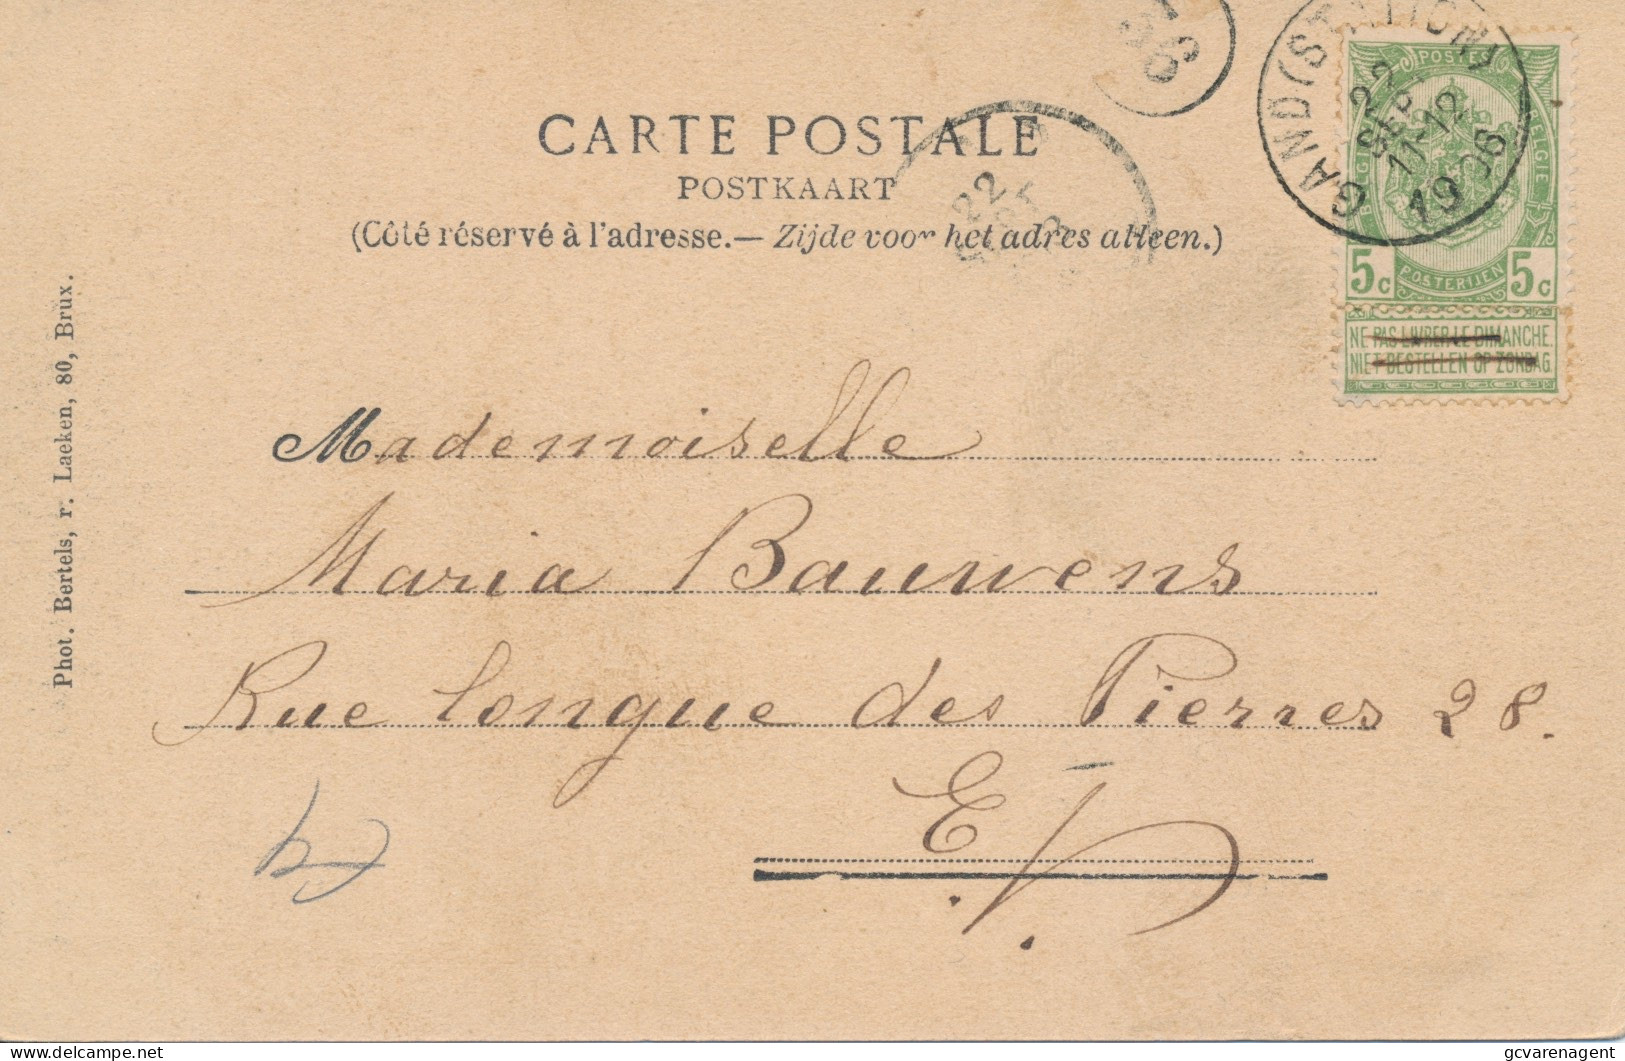 GAND (STATION)
22
SEPT
11-12
1906
22
POSTES
BELGIQUE
BELGIË
5c
5c
POSTERIJEN
NE PAS LIVRER LE DIMANCHE.
NIET BESTELLEN OP ZONDAG.
CARTE POSTALE
POSTKAART
(Côté réservé à l'adresse.— Zijde voor het adres alleen.)
Phot. Bertels, r. Laeken, 80, Brux.
Mademoiselle
Maria Bauwens
Rue longue des Pierres 28.
E.V.
delcampe.net
gcvarenagent